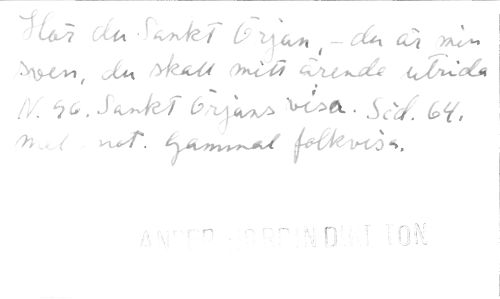 Hör du Sankt Örjan, – du är min
sven, du skall mitt ärende utrida
N. 90. Sankt Örjans visa. Sid. 64.
mel. not. Gammal folkvisa.